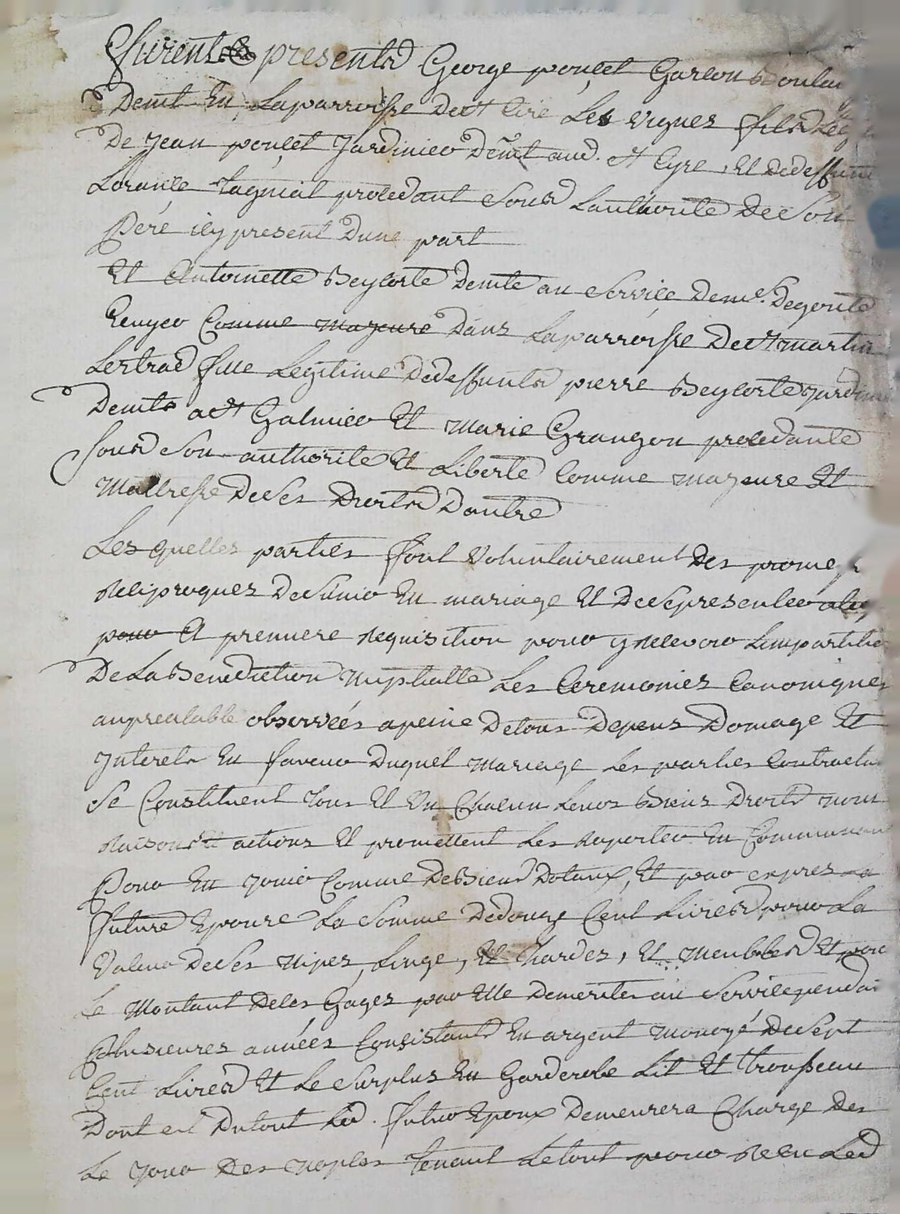 Furent presents George poulet Garcon Boulan
Demt En Laparroisse De st Cire Les vignes fils Leg
De Jean poulet Jardinier Demt aud. st Cyre, Et dedeffunte
procedant Sous Lauthorite De Son
Pere icy present Dune part
Et Antoinette Beylotte Demte au Service De mr.
Comme majeure Dans Laparroisse De st martin
Lestrad fille Legitime Dedeffunts pierre Beylotte jardin
Demts a st Galmier Et Marie Grangon procedante
Sous Son authorite Et Liberte Comme majeure Et
Maitresse De Ses Droits Dautre
Lesquelles parties font Volontairement Des promess
Reciproques De Sunir En mariage Et De Se presenter
pour A premiere requisition pour y recevoir Limpartition
De La Benediction Nuptialle Les Ceremonies Canoniques
aupréalable observées apeine De tous Depens Domage Et
Interets En faveur Duquel Mariage Les parties Contractan
Se Constituent tous Et Un Chacun Leurs Biens Droits noms
Raisons actions Et promettent Les Raporter En Communion
Pour En Jouir Comme De Biens Dotaux, Et par expres La
future Epouse La Somme De douze Cent Livres pour La
Valeur De Ses Nipes, Linge, Et Hardes, Et Meubles Et pour
Le Montant De Ses Gages par Elle Merites au Service pendan
Plusieures années Consistant En argent monoyé De Sept
Cent Livres Et Le Surplus En Garderobe Lit Et trousseau
Dont Et Du tout Led. futur Epoux Demeurera Chargé Des
Le Jour Des Noples tenant Le tout pour Receu Led